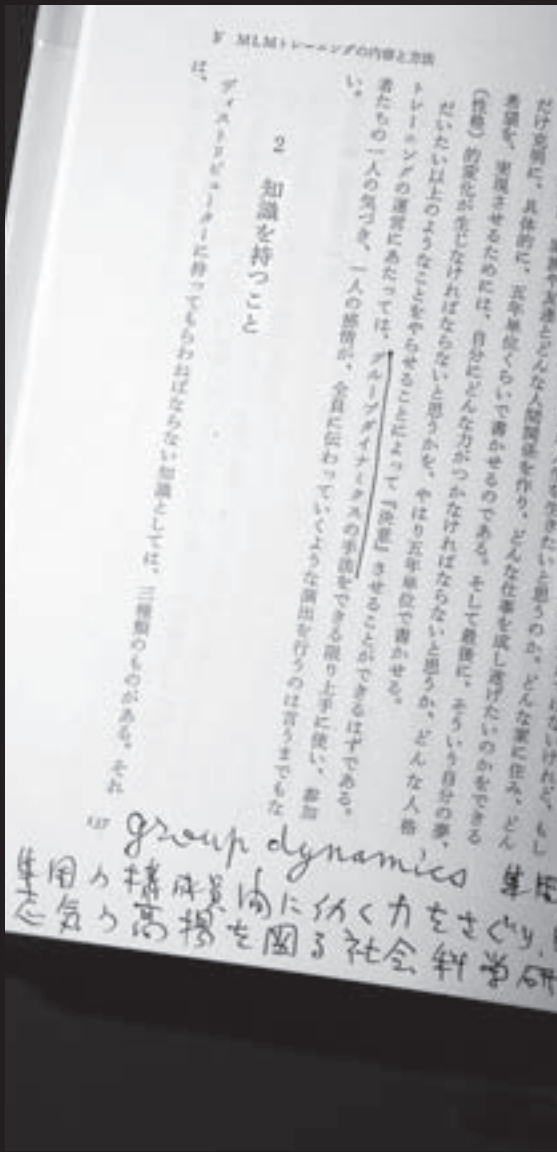 V MLMトレーニングの内容と方法
いけれど、もし
たいと思うのか、どんな家に住み、どん
どんな人間関係を作り、どんな仕事を成し遂げたいのかをできる
だけ克明に、具体的に、五年単位くらいで書かせるのである。そして最後に、そういう自分の夢、
希望を、実現させるためには、自分にどんな力がつかなければならないと思うか、どんな人格
(性格)的変化が生じなければならないと思うかを、やはり五年単位で書かせる。
だいたい以上のようなことをやらせることによって『決意』させることができるはずである。
トレーニングの運営にあたっては、グループダイナミクスの手法をできる限り上手に使い、参加
者たちの一人の気づき、一人の感情が、全員に伝わっていくような演出を行うのは言うまでもな
い。
2 知識を持つこと
ディストリビューターに持ってもらわねばならない知識としては、三種類のものがある。それ
は、
137
group dynamics 集団
集団の構成員間に働く力をさぐり、
志気の高揚を図る社会科学研